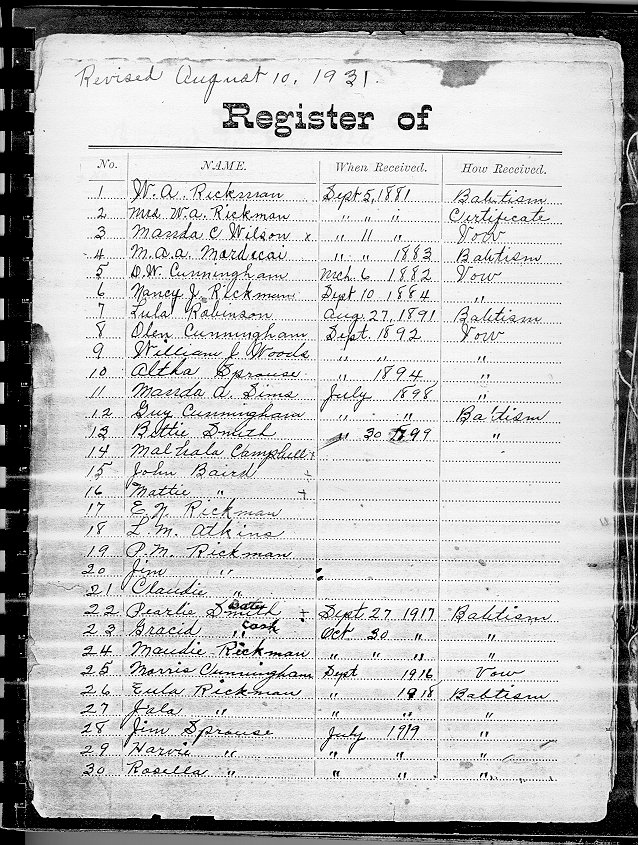 Revised August 10, 1931.
Register of
No. NAME. When Received. How Received.
1 W. A. Rickman Sept 5, 1881 Babtism
2 Mrs W. A. Rickman " " " Certificate
3 Manda C Wilson x " 11 " Vow
4 M. A. A. Mordecai " " 1883 Babtism
5 D. W. Cunningham Mch 6 1882 Vow
6 Nancy J. Rickman Sept 10 1884 "
7 Lula Robinson Aug 27, 1891 Babtism
8 Olen Cunningham Sept. 1892 Vow
9 William J Woods " " "
10 Altha Sprouse " 1894 "
11 Manda A. Sims July 1898 "
12 Guy Cunningham " " Babtism
13 Bettie Smith " 30 1899 "
14 Malhala Campbell +
15 John Baird +
16 Mattie " +
17 E. N. Rickman
18 L. M. Atkins
19 P. M. Rickman
20 Jim "
21 Claudie "
22 Pearlie Smith + Sept 27 1917 Babtism
23 Gracie " Cash Oct 30 " "
24 Maudie Rickman " " " "
25 Morris Cunningham Sept 1916 Vow
26 Eula Rickman " 1918 Babtism
27 Jala " " " "
28 Jim Sprouse July 1919 "
29 Harvie " " " "
30 Rosella " " " "